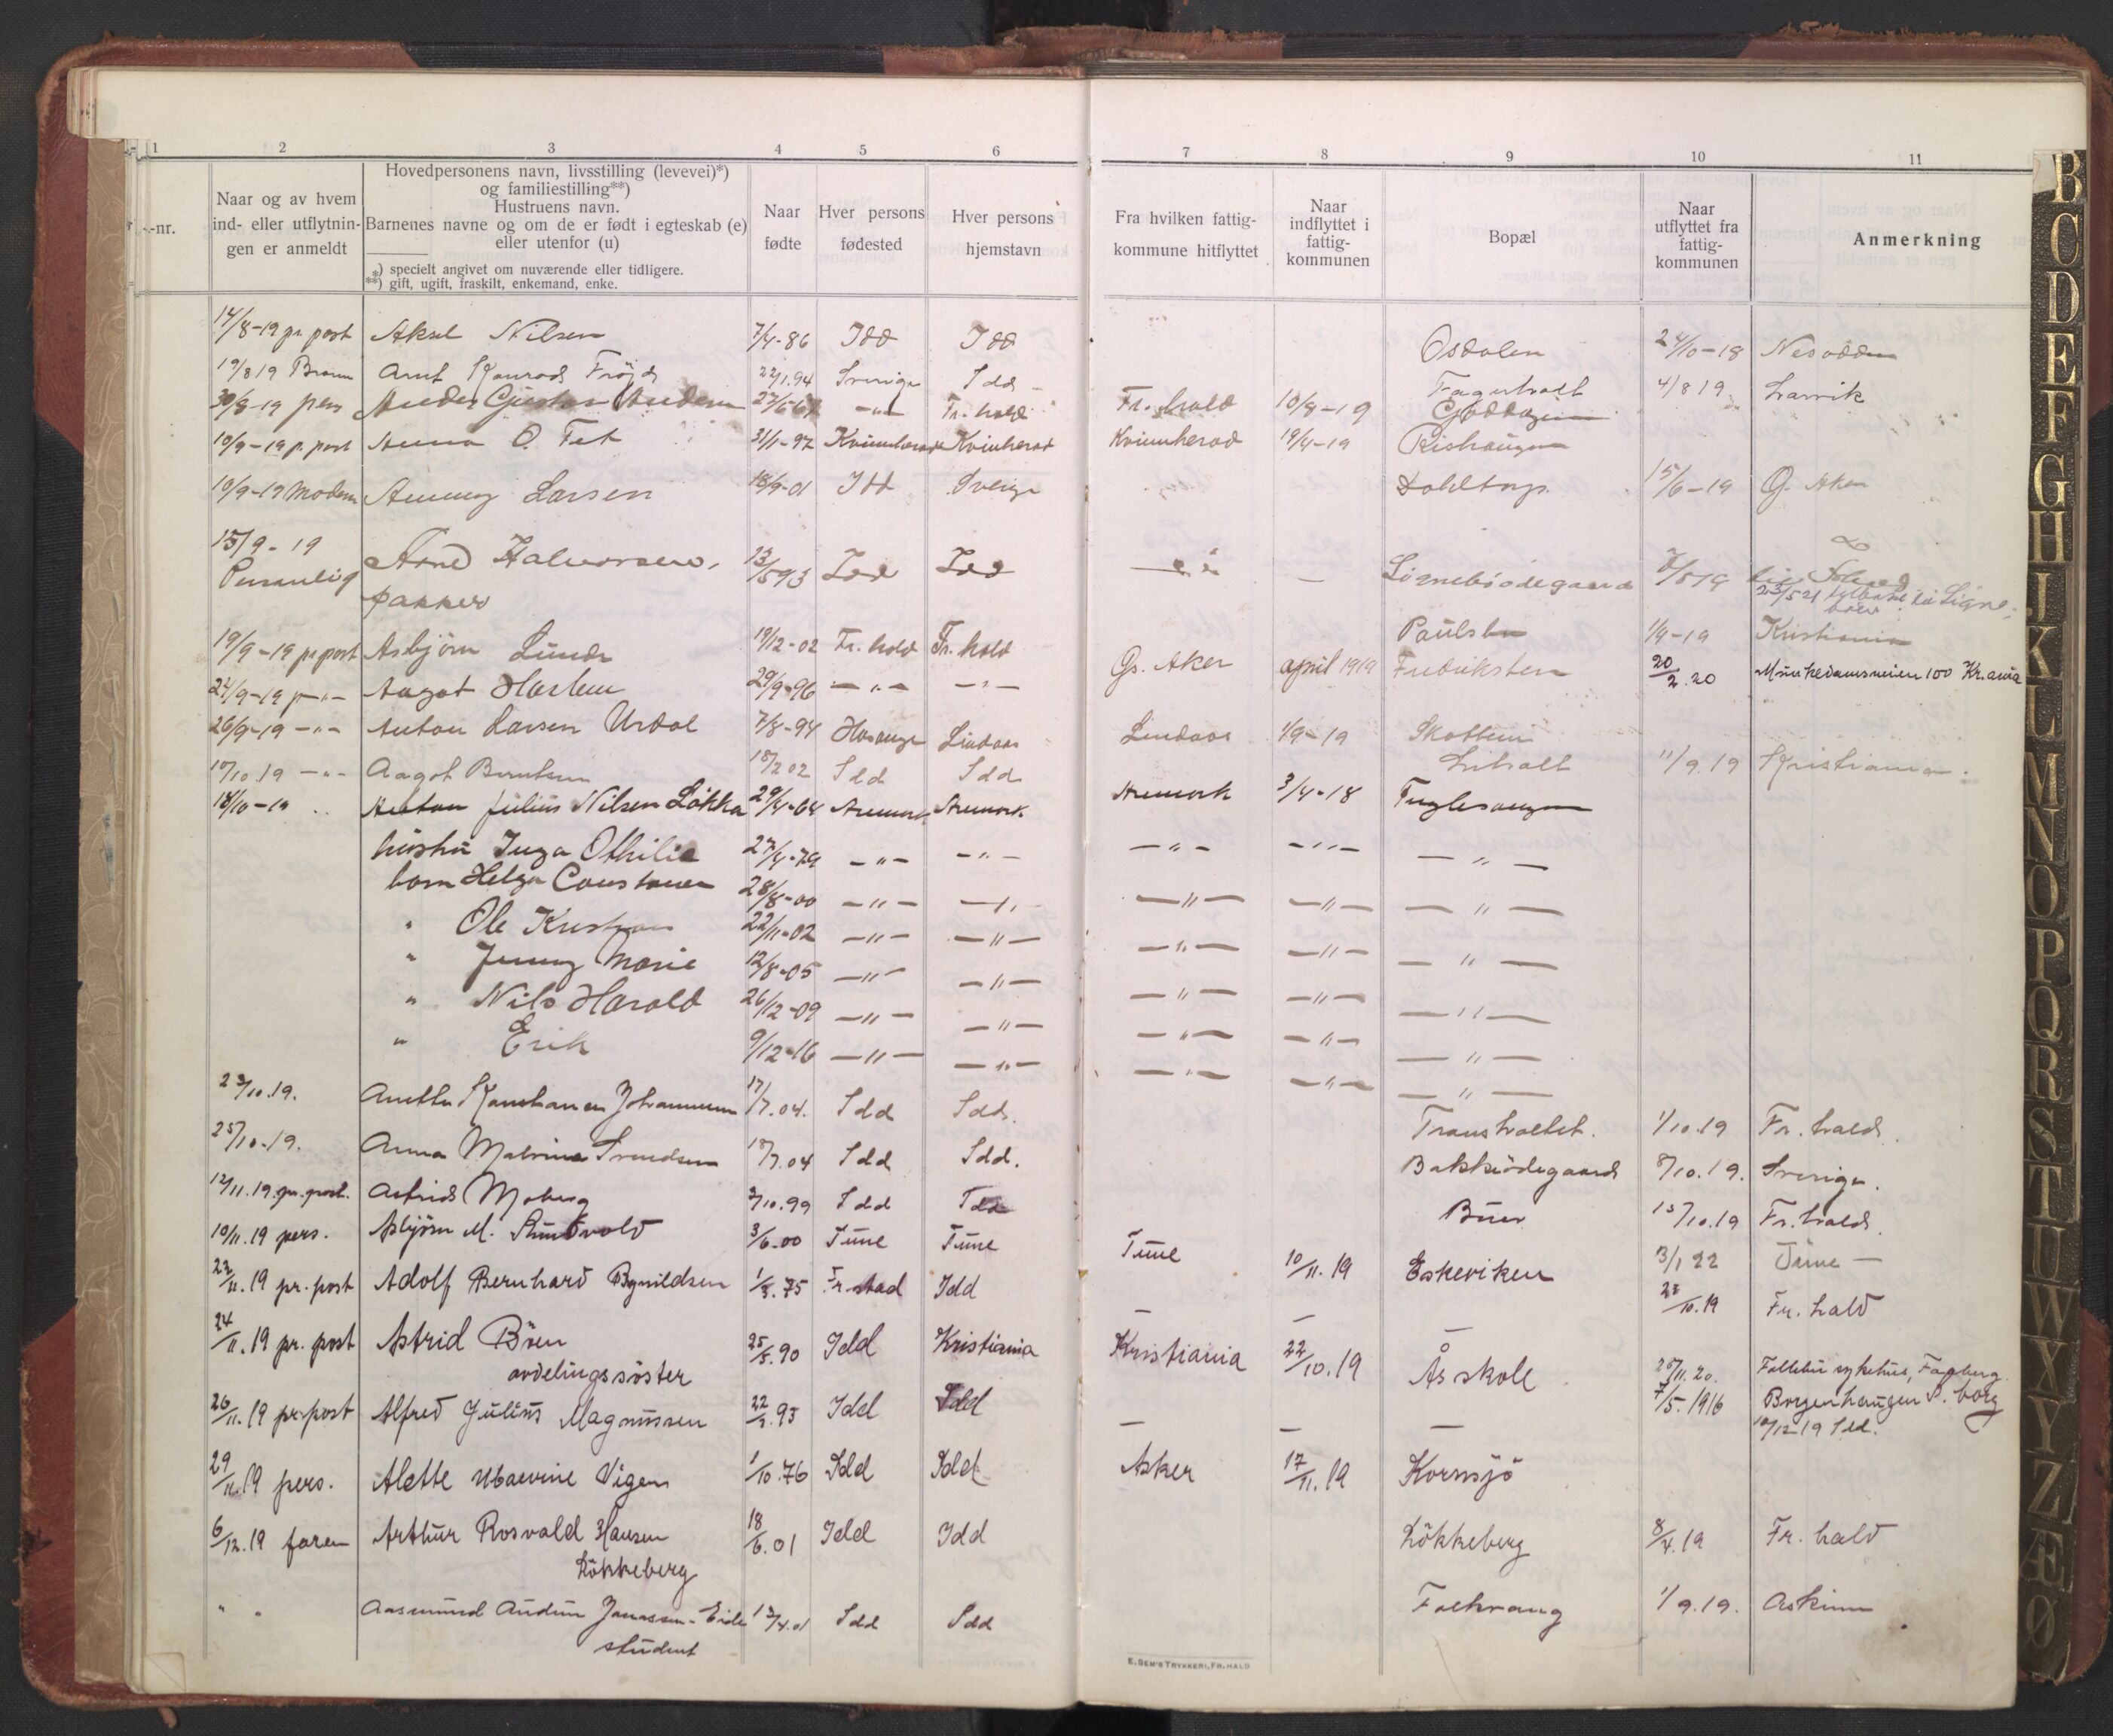 1 2 3 4 5 6 7 8 9 10 11
-nr.
Naar og av hvem ind- eller utflytningen er anmeldt
Hovedpersonens navn, livsstilling (levevei)*)
og familiestilling**)
Hustruens navn.
Barnenes navne og om de er født i egteskab (e)
eller utenfor (u)
*) specielt angivet om nuværende eller tidligere.
**) gift, ugift, fraskilt, enkemand, enke.
Naar fødte
Hver persons fødested
Hver persons hjemstavn
Fra hvilken fattigkommune hitflyttet
Naar indflyttet i fattigkommunen
Bopæl
Naar utflyttet fra fattigkommunen
Anmerkning
14/8-19 pr. post Aksel Nilsen 7/4-86 Idd Idd Osdalen 24/10-18 Nesodden
19/8 19 Arnt Konrad Fröjd 22/1.94 Sverige Idd Fagerholt 4/8 19 Larvik
30/8-19 pers Anders Gustav -"- Fr.hald Fr.hald 10/8-19
10/9-19 p. post Anna O. Fet 31/1-97 Kvinnherad Kvinherad Kvinnherad 19/4-19 Rishaugen
10/9-19 Modern Larsen 18/9-01 Idd Sverige 15/6-19 G. Aker
15/9-19 Personlig Arne Halvorsen, 13/5 93 Idd Idd
pakker
19/9-19 pr post Asbjörn Lunde 19/12-02 Fr.hald Fr.hald Paulsbo 1/9-19 Kristiania
24/9-19 p -"- Aagot Harlem 29/9-96 -"- -"- Gs. Aker april 1919 Fredriksten 20/2.20 Munkedamsveien 100 Kr.ania
26/9-19 -"- Anton Larsen Urdal 7/8-94 Lindaas Lindaas 1/9-19
10/10.19 -"- Aagot Berntsen 18/2 02 Idd Idd Liholt 11/9.19 Kristiania.
18/10-19 Anton Julius Nilsen Lökka 29/4-64 Aremark Aremark Aremark 3/4-18 Fuglesangen
hustru Inga Othilie 27/4-79 -"- -"- -"- -"- -"-
barn Helga 28/8-00 -"- -"- -"- -"- -"-
" Ole Kristian 22/11-02 -"- -"- -"- -"- -"-
" Jenny Marie 12/8-05 -"- -"- -"- -"- -"-
" Nils Harald 26/12-09 -"- -"- -"- -"- -"-
" Erik 9/12-16 -"- -"- -"- -"- -"-
23/10.19. Anetta Johannessen 17/7.04. Idd Idd. Transholtet. 1/10.19 Fr.hald.
25/10.19. Anna Svendsen 18/7.04 Idd Idd. Bakkeödegaard 8/10.19. Sverige.
12/11.19. pr. post. Astrid Moberg 2/10.99 Idd Idd Buer 15/10.19 Fr.hald.
10/11.19 pers. Asbjörn M. Sundvold 3/6.00 Tune Tune Tune 10/11.19 Eskeviken 3/1 22 Tune -
22/11.19 pr. post Adolf Bernhard Bynildsen 1/3.75 Fr.stad Idd - - - 23/10.19 Fr.hald
24/11.19 pr. post Astrid Böen 25/5.90 Idd Kristiania Kristiania 22/10.19 Ås skole 25/11.20.
avdelingssöster
26/11.19 pr. post Alfred Julius Magnussen 22/2.93 Idd Idd - - - 7/5.1916 Borgenhaugen S.borg
10/12 19 Idd.
29/11.19 pers. Alette Maevine Vigen 1/10.76 Idd Idd Asker 17/11.19 Kornsjö
6/12.19 faren Arthur Rosvald Hansen 18/6.01 Idd Idd Lökkeberg 8/4.19 Fr.hald
Lökkeberg
" " Aasmund Audun Jonassen-Eide 13/4.01 Idd Idd Folkvang 1/9.19. Askim
student
E. SEM'S TRYKKERI, FR.HALD
B
C
D
E
F
G
H
J
K
L
M
N
O
P
Q
R
S
T
U
W
X
Y
Z
Æ
Ø